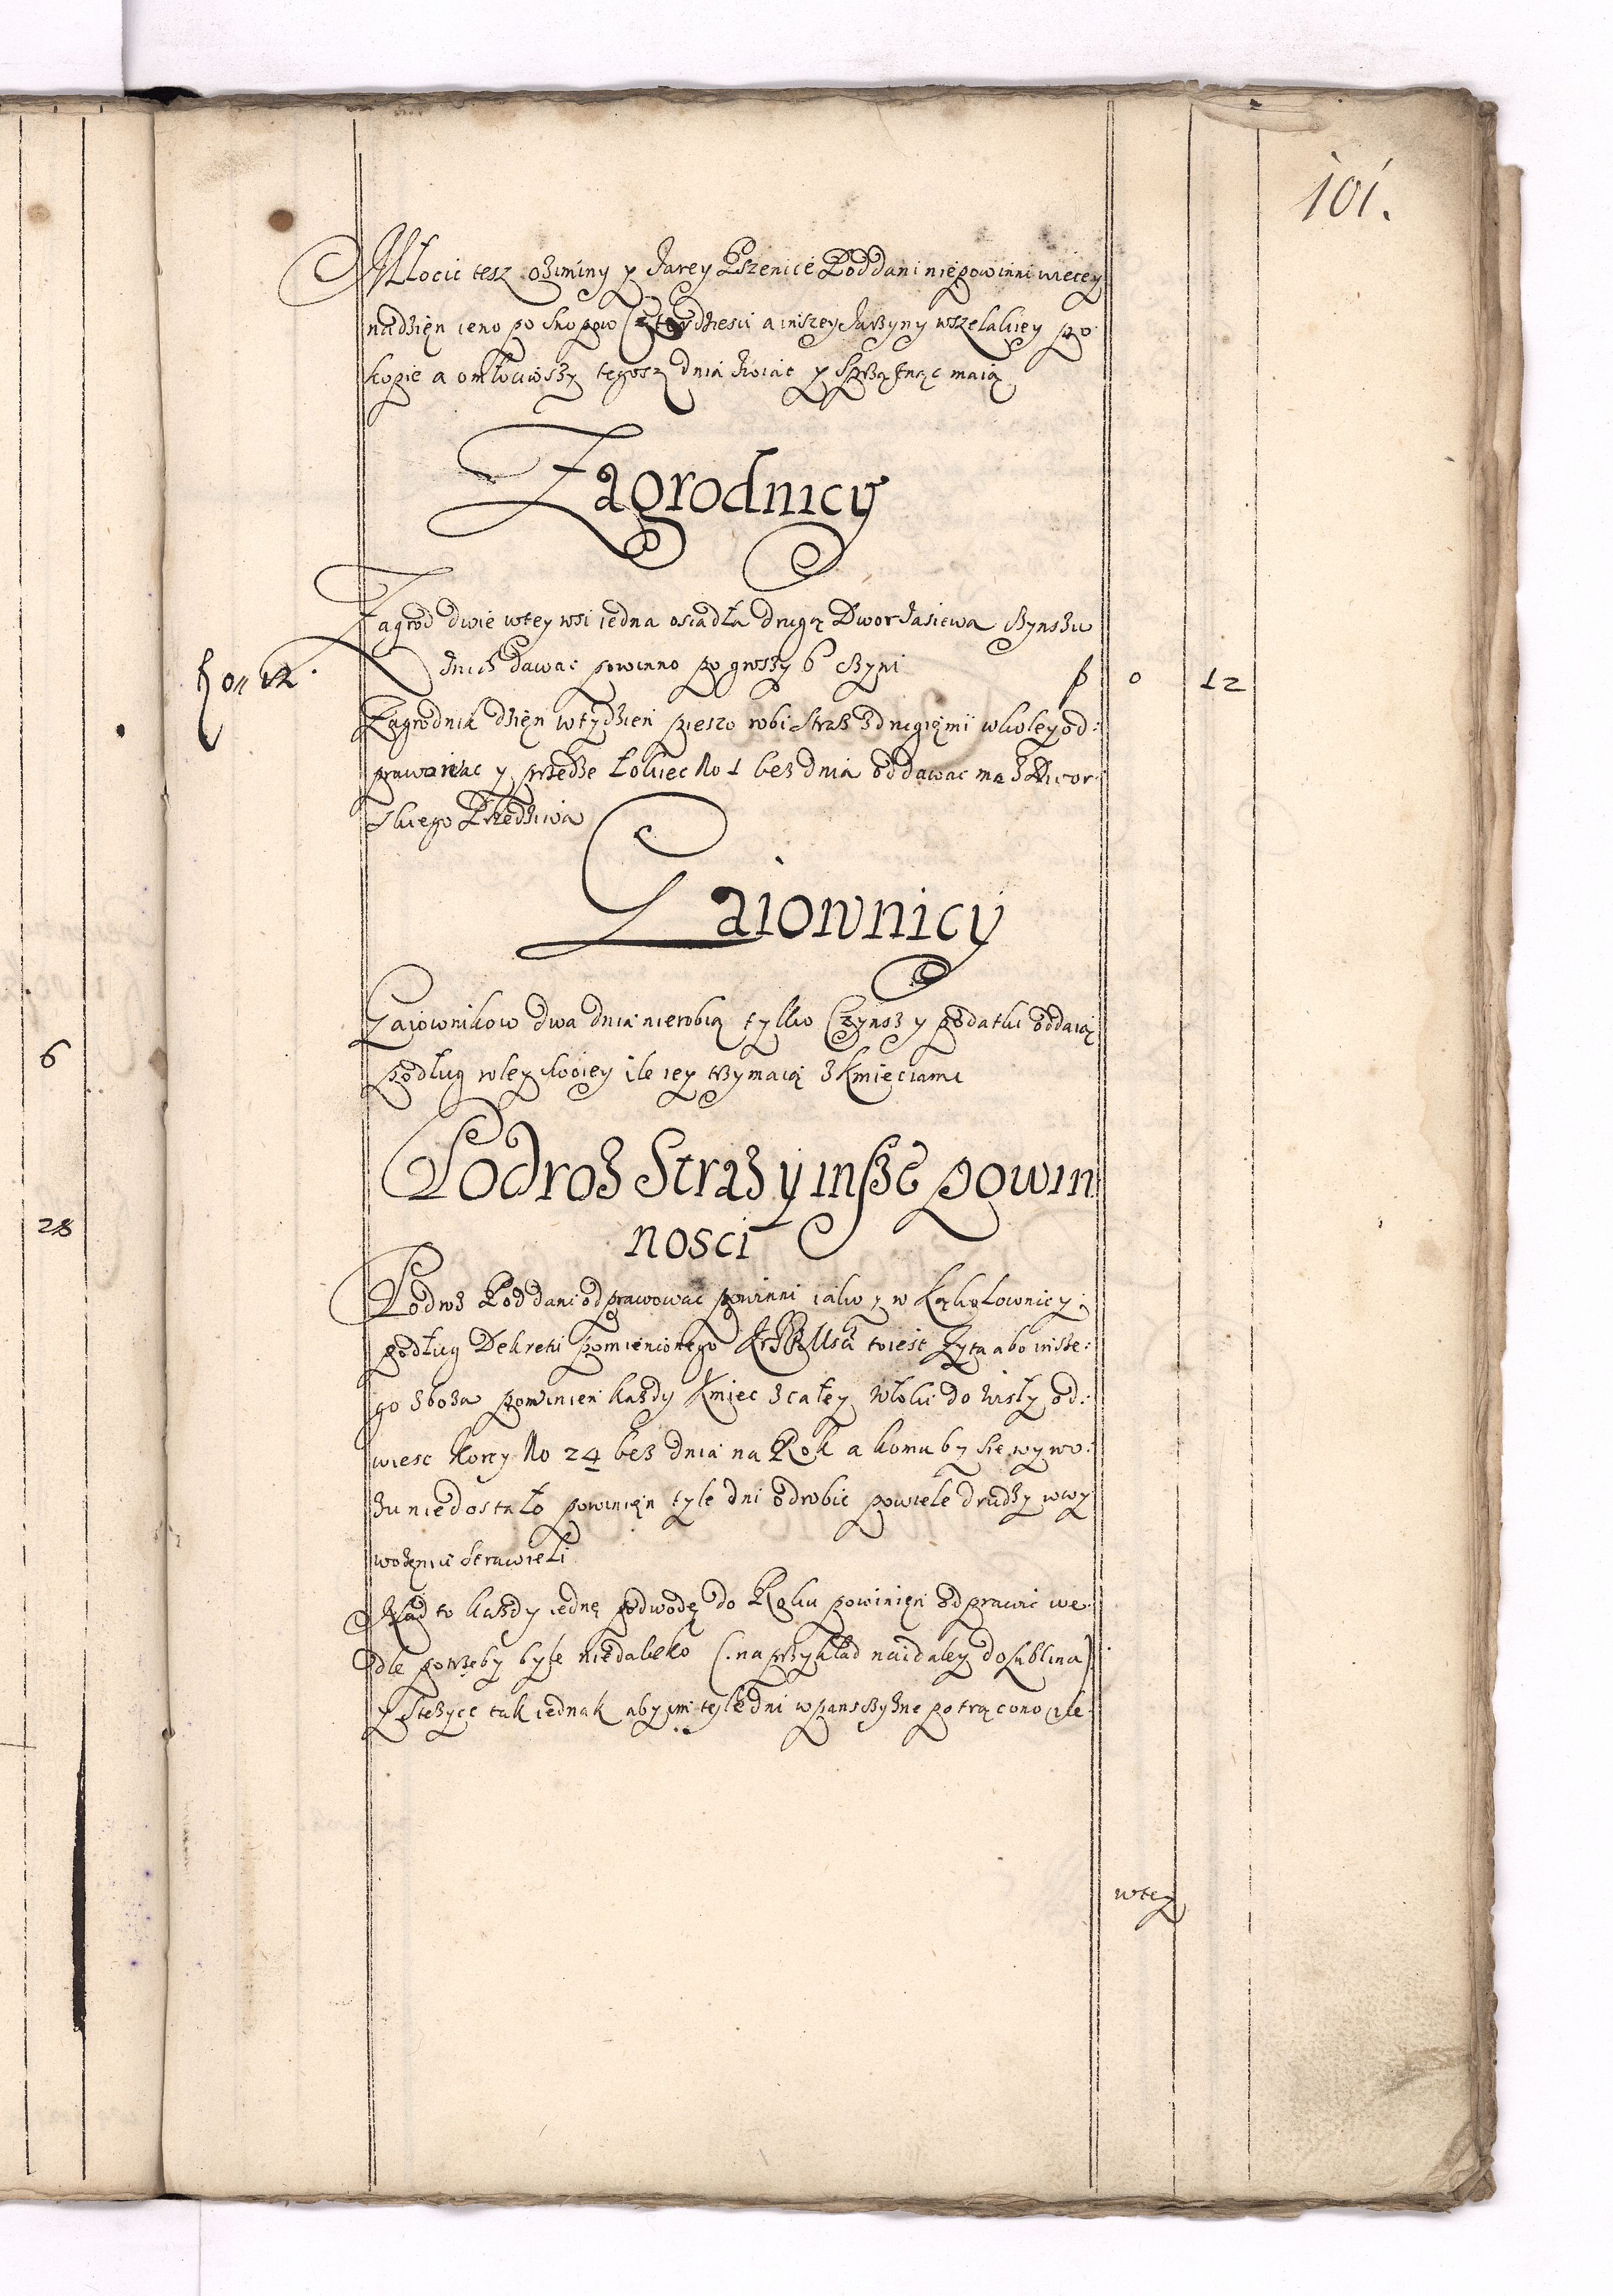 101.
Młocic tesz oziminy y Jarey Pszenice Poddani niepowinni wiecey
nadzien ieno po snopow Czterdziesci a inszey Jarzyny wszelakiey po
kopie a omłociwszy tegosz dnia zwiać y sprzątnąc maią
Zagrodnicy
Zagrod dwie wtey wsi iedna osiadła drugą Dwor zasiewa Czynszu
znich dawac powinno po groszy 6 czyni f 0 12
f 0 // 12.
Zagrodnik dzien wtydzien pieszo robi straz zdrugięmi wkoley od:
prawowac y przedze Łokiec No 1 bez dnia oddawac ma z Dwor:
skiego Przedziwa
Gaiownicy
Gaiownikow dwa dnia nierobią tylko Czynsz y podatki oddaią
podług roley swoiey ile iey trzymaią z Kmieciami
6
Podroz Straz y insze powin
nosci
28
Podroz Poddani odprawowac powinni iako y w Kąkolownicy
podług Dekretu pomienionego toiest Zyta abo insze:
go zboza powinien kazdy Kmiec z całey Włoki do Wisły od:
wiesc Korcy No 24 bez dnia na Rok a komu by sie wywo:
zu niedostało powinien tyle dni odrobic powiele drudzy wwy
wozeniu strawieli
Nad to kazdy iednę podwodę do Roku powinien odprawic we:
dle potrzeby byle niedaleko (: na przykład naidaley do Lublina)
y Stezyce tak iednak aby im tyle dni wpanszczyzne potrącono ile
wtey